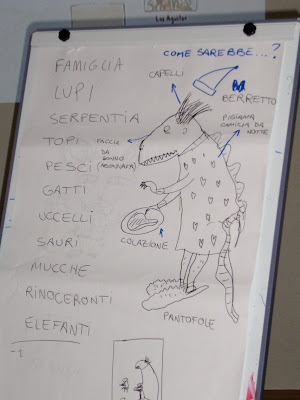 Los Aguilar
COME SAREBBE...?
FAMIGLIA
CAPELLI
LUPI
BERRETTO
SERPENTIA
PIGIAMA
CAMICIA DA
NOTTE
TOPI
FACCIA
DA
SONNO
(ASSONNATA)
PESCI
GATTI
UCCELLI
COLAZIONE
SAURI
MUCCHE
RINOCERONTI
PANTOFOLE
ELEFANTI
-1